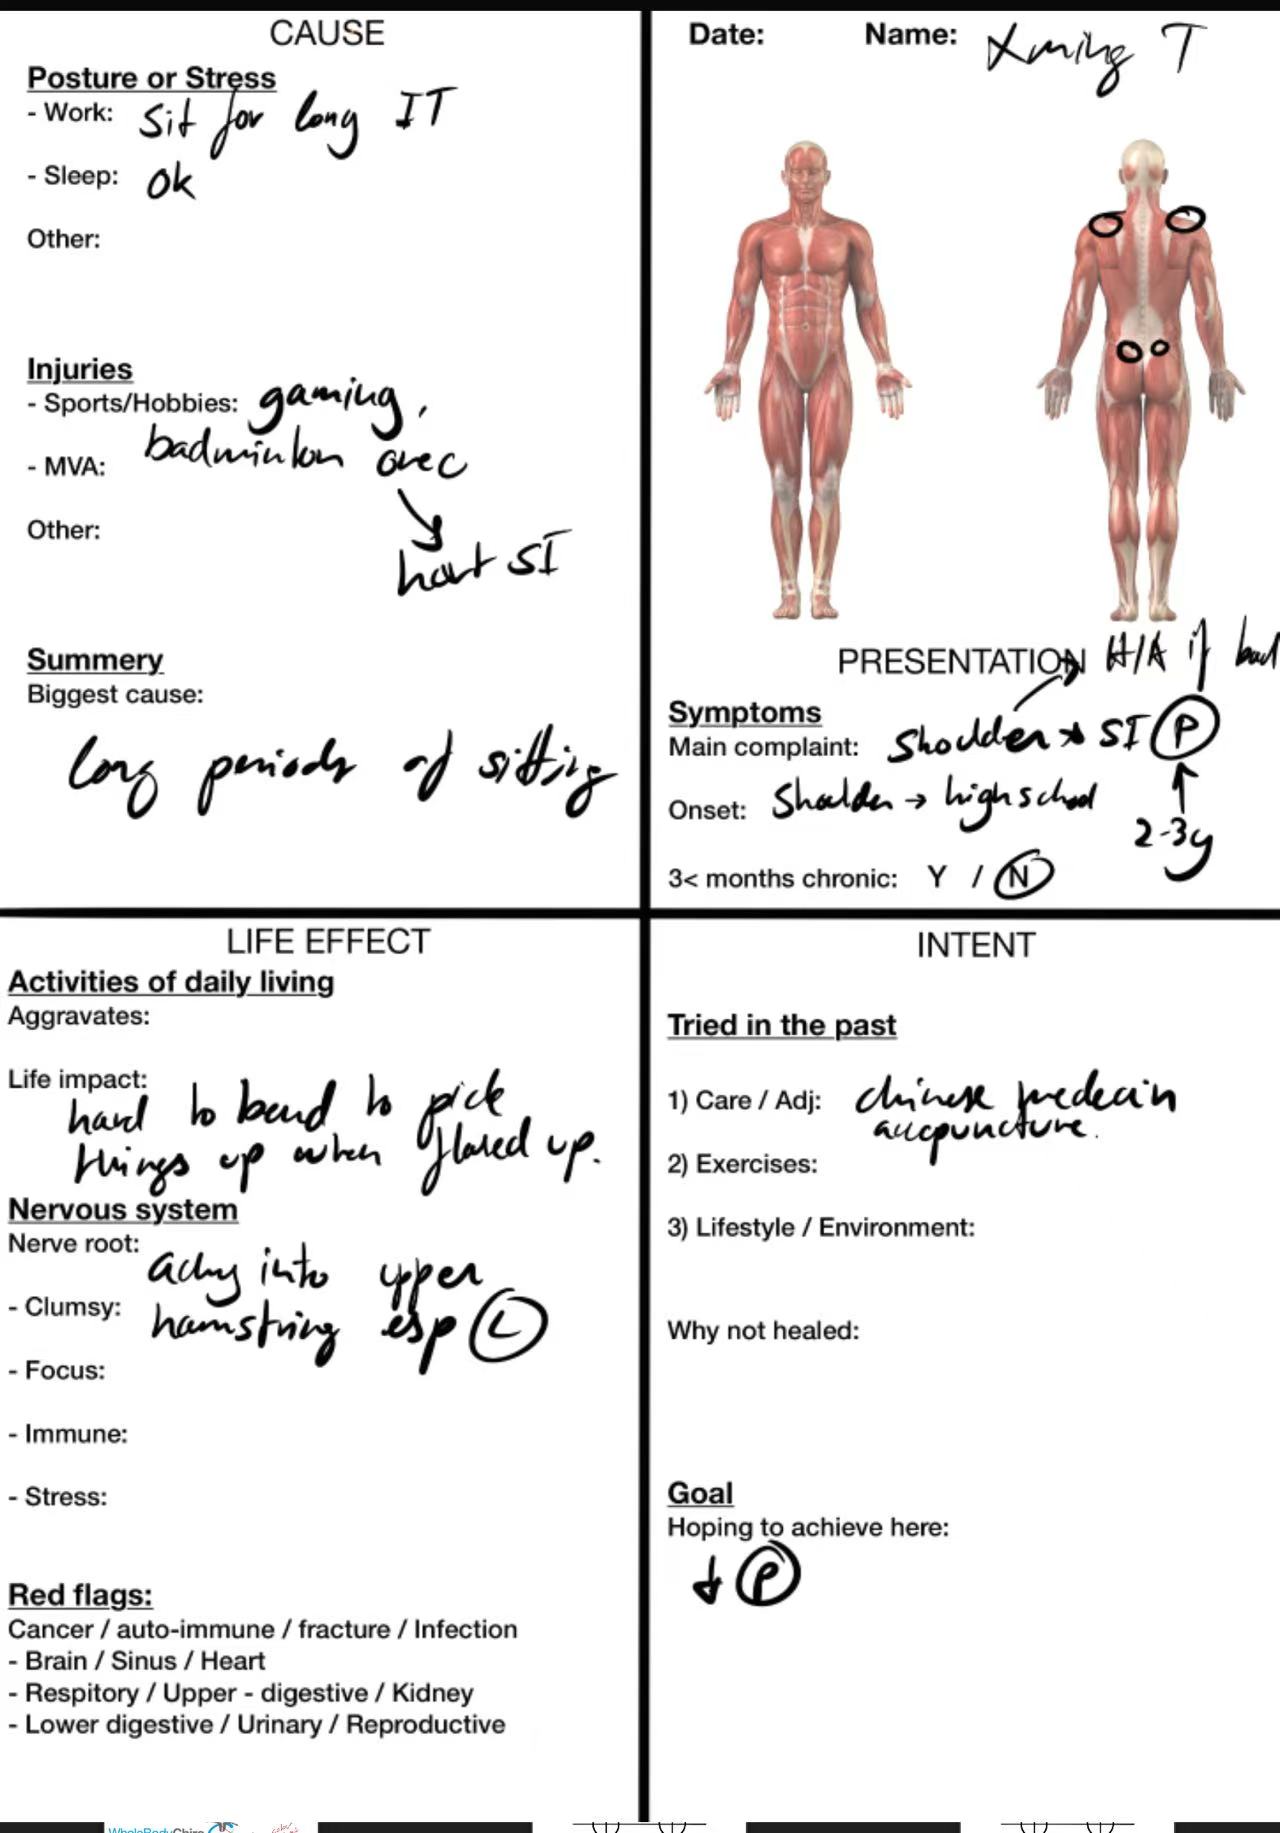 CAUSE
Posture or Stress
- Work: Sit for long IT
- Sleep: ok
Other:
Injuries
- Sports/Hobbies: gaming,
badminton
- MVA:
Other:
hurt SI
Summery
Biggest cause:
long periods of sitting
Date: Name: Xming T
PRESENTATION H/A if bad
Symptoms
Main complaint: Shoulder SI P
Onset: Shoulder → high school
2-3y
3< months chronic: Y / N
LIFE EFFECT
Activities of daily living
Aggravates:
Life impact:
hard to bend to pick
things up when flared up.
Nervous system
Nerve root: achy into upper
- Clumsy: hamstring esp L
- Focus:
- Immune:
- Stress:
Red flags:
Cancer / auto-immune / fracture / Infection
- Brain / Sinus / Heart
- Respitory / Upper - digestive / Kidney
- Lower digestive / Urinary / Reproductive
INTENT
Tried in the past
1) Care / Adj: chinese medecin
accpuncture.
2) Exercises:
3) Lifestyle / Environment:
Why not healed:
Goal
Hoping to achieve here:
↓ P